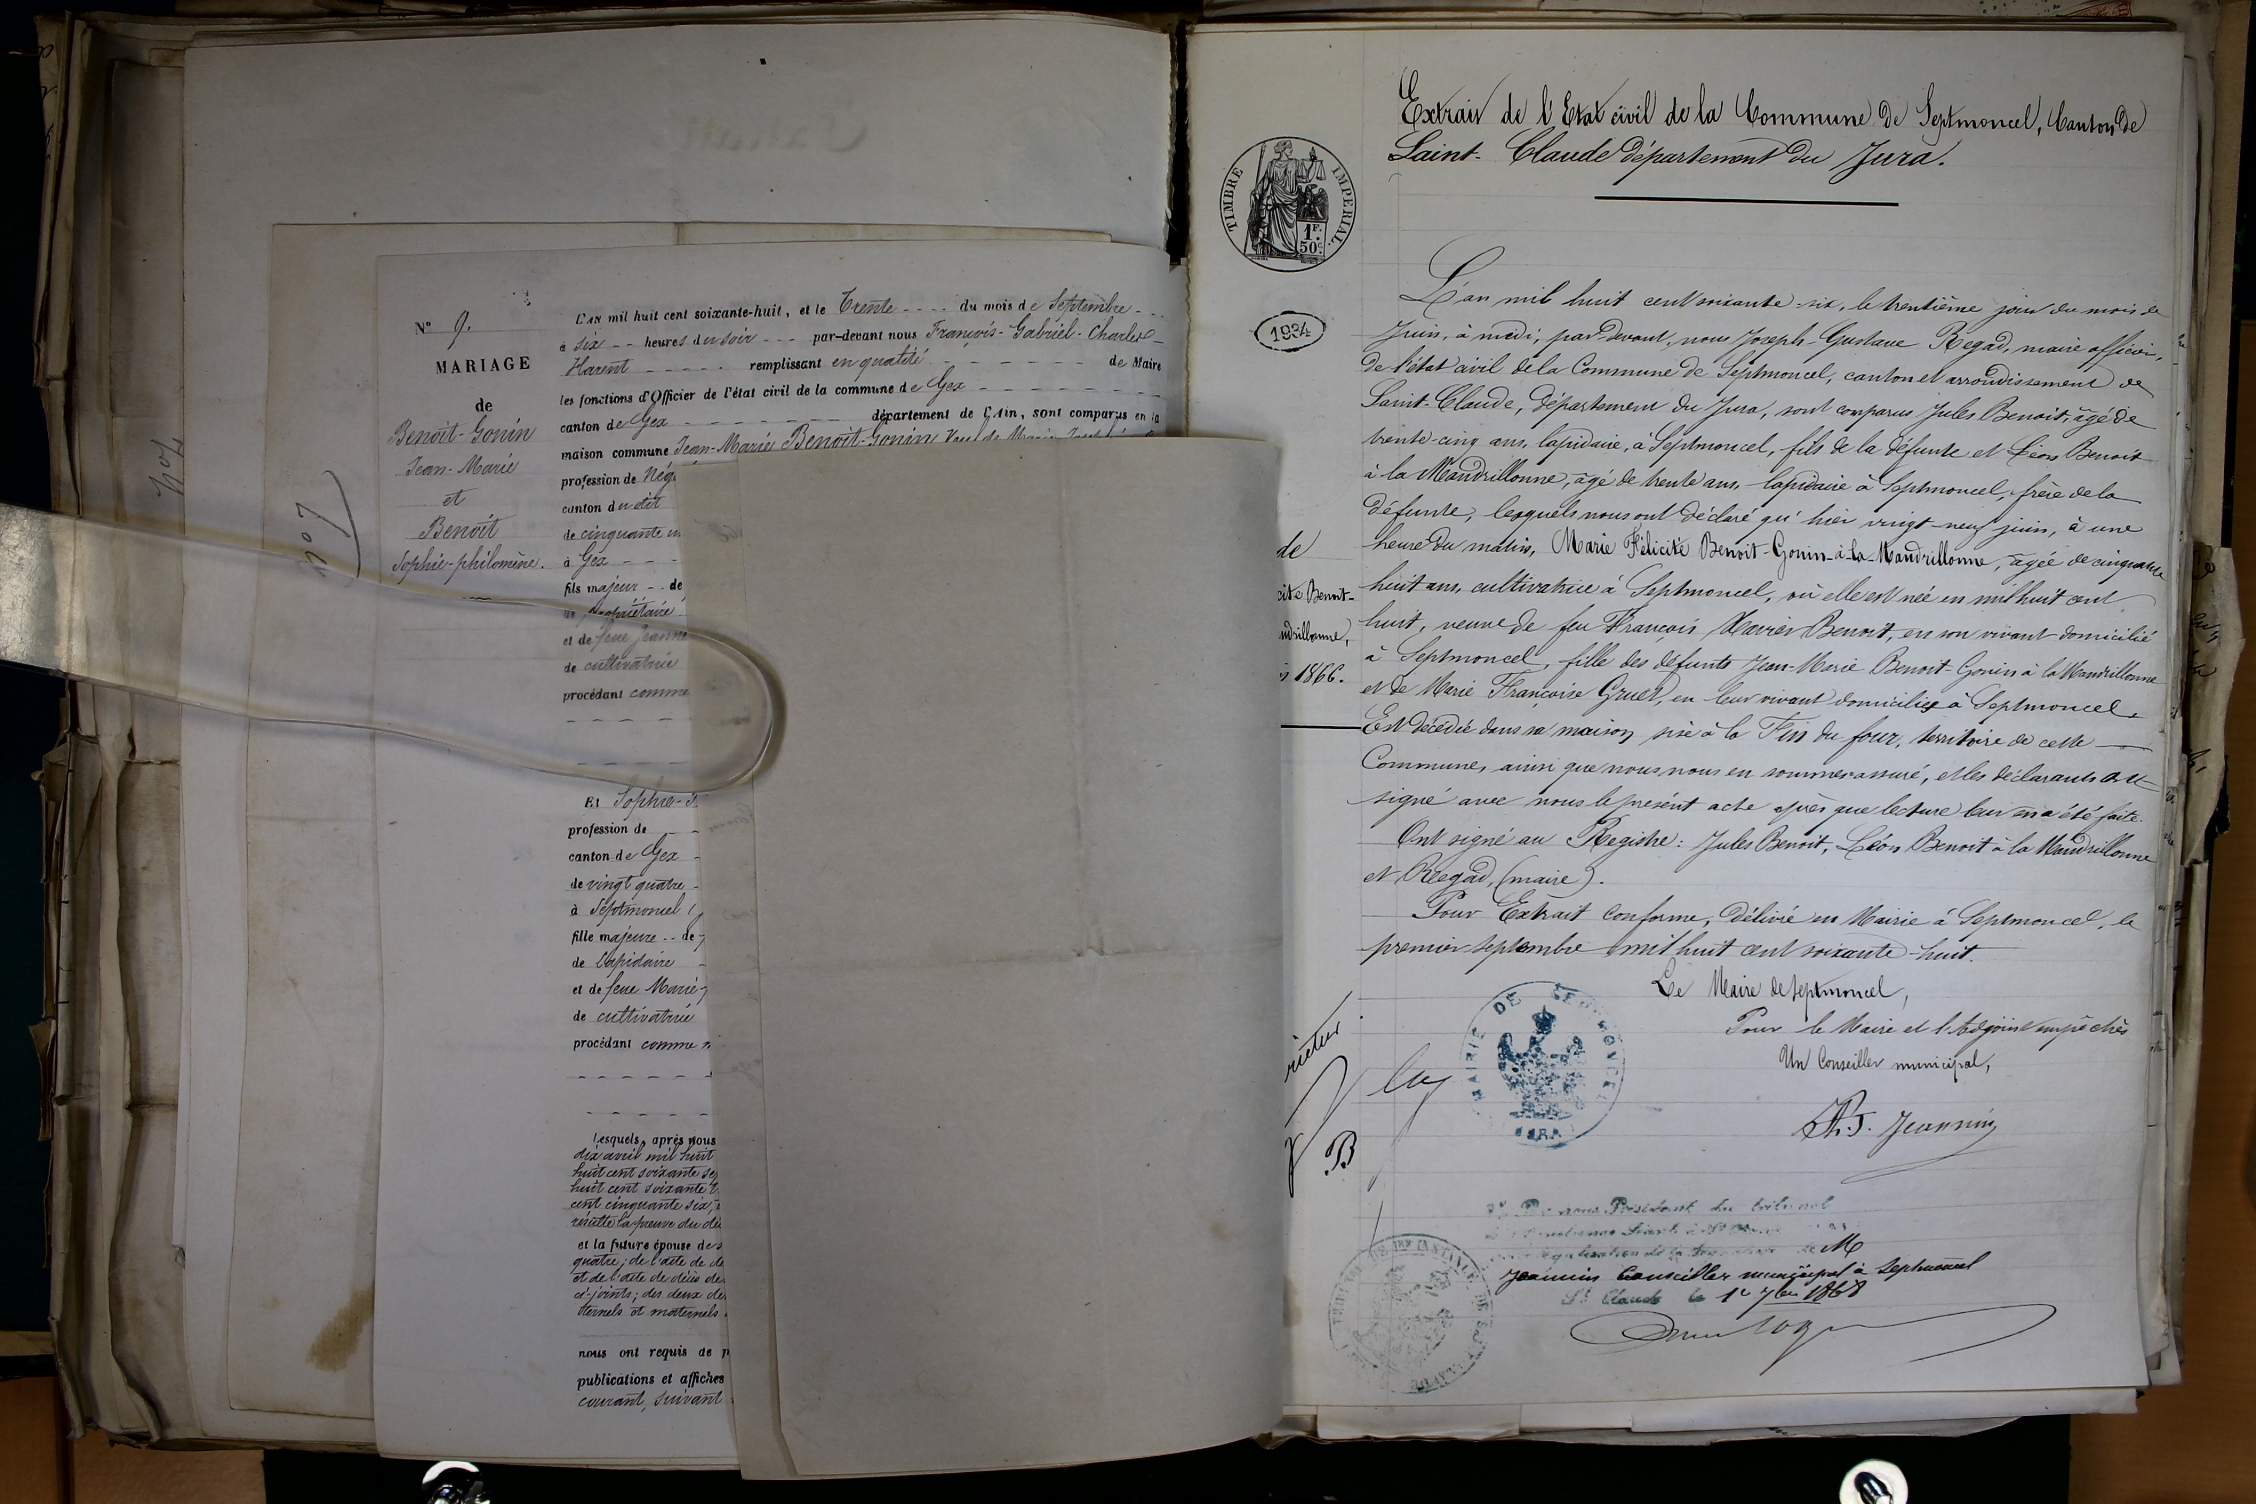 N° 9.
MARIAGE
de
Benoit-Gonin
Jean-Marie
et
Benoit
Sophie-philomène.
L'AN mil huit cent soixante-huit, et le Trente - - - - du mois de Septembre - - -
à six - - heures du soir - - - par-devant nous François-Gabriel-Charles
Harent - - - - - remplissant en qualité - - - - - de Maire
les fonctions d'Officier de l'état civil de la commune de Gex - - - - - - -
canton de Gex - - - - - - - département de l'Ain, sont comparus en la
maison commune Jean-Marie Benoit-Gonin
profession de Nég
canton du dit
de cinquante
à Gex - - -
fils majeur - - de
de propriétaire
et de feue Jeanne
de cultivatrice
procédant comme
Et Sophie-
profession de - -
canton de Gex -
de vingt quatre -
à Septmoncel
fille majeure - - de
de lapidaire -
et de feue Marie-
de cultivatrice
procédant comme
Lesquels, après nous
dix avril mil huit
huit cent soixante
huit cent soixante
cent cinquante six,
résulte la preuve du
et la future épouse de
quatre; de l'acte de
et de l'acte de décès de
ci-joints; des deux
ternels et maternels
nous ont requis de p
publications et affiches
courant, suivant
n° 7
n° 4
TIMBRE IMPERIAL
1F.
50c.
1934
de
cité Benoit-
ndrillonne,
1866.
Extrait de l'Etat civil de la Commune de Septmoncel, Canton de
Saint-Claude département du Jura.
L'an mil huit cent soixante-six, le trentième jour du mois de
Juin, à midi, par-devant, nous Joseph-Gustave Regad, maire officier,
de l'état civil de la Commune de Septmoncel, canton et arrondissement de
Saint-Claude, département du Jura, sont comparus Jules Benoit, âgé de
trente-cinq ans, lapidaire, à Septmoncel, fils de la défunte et Léon Benoit
à la Mandrillonne, âgé de trente ans, lapidaire à Septmoncel, frère de la
défunte, lesquels nous ont déclaré qu'hier vingt-neuf juin, à une
heure du matin, Marie Félicité Benoit-Gonin-à-la-Mandrillonne, âgée de cinquante
huit ans, cultivatrice à Septmoncel, où elle est née en mil huit cent
huit, veuve de feu François Xavier Benoit, en son vivant domicilié
à Septmoncel, fille des défunts Jean-Marie Benoit-Gonin à la Mandrillonne
et de Marie Françoise Gruet, en leur vivant domiciliés à Septmoncel.
Est décédée dans sa maison sise à la Fin du four, territoire de cette
Commune, ainsi que nous nous en sommes assuré, et les déclarants ont
signé avec nous le présent acte après que lecture leur en a été faite.
Ont signé au Registre: Jules Benoit, Léon Benoit à la Mandrillonne
et Regad, (maire).
Pour Extrait conforme, Délivré en Mairie à Septmoncel, le
premier septembre mil huit cent soixante-huit.
Le Maire de Septmoncel,
Pour le Maire et l'Adjoint empêchés
Un Conseiller municipal,
Jeannin
MAIRIE DE SEPTMONCEL
JURA
B
Vu Par nous Président du tribunal
légalisation de la signature de M
Jeannin Conseiller municipal à Septmoncel
St Claude le 1er 7bre 1868